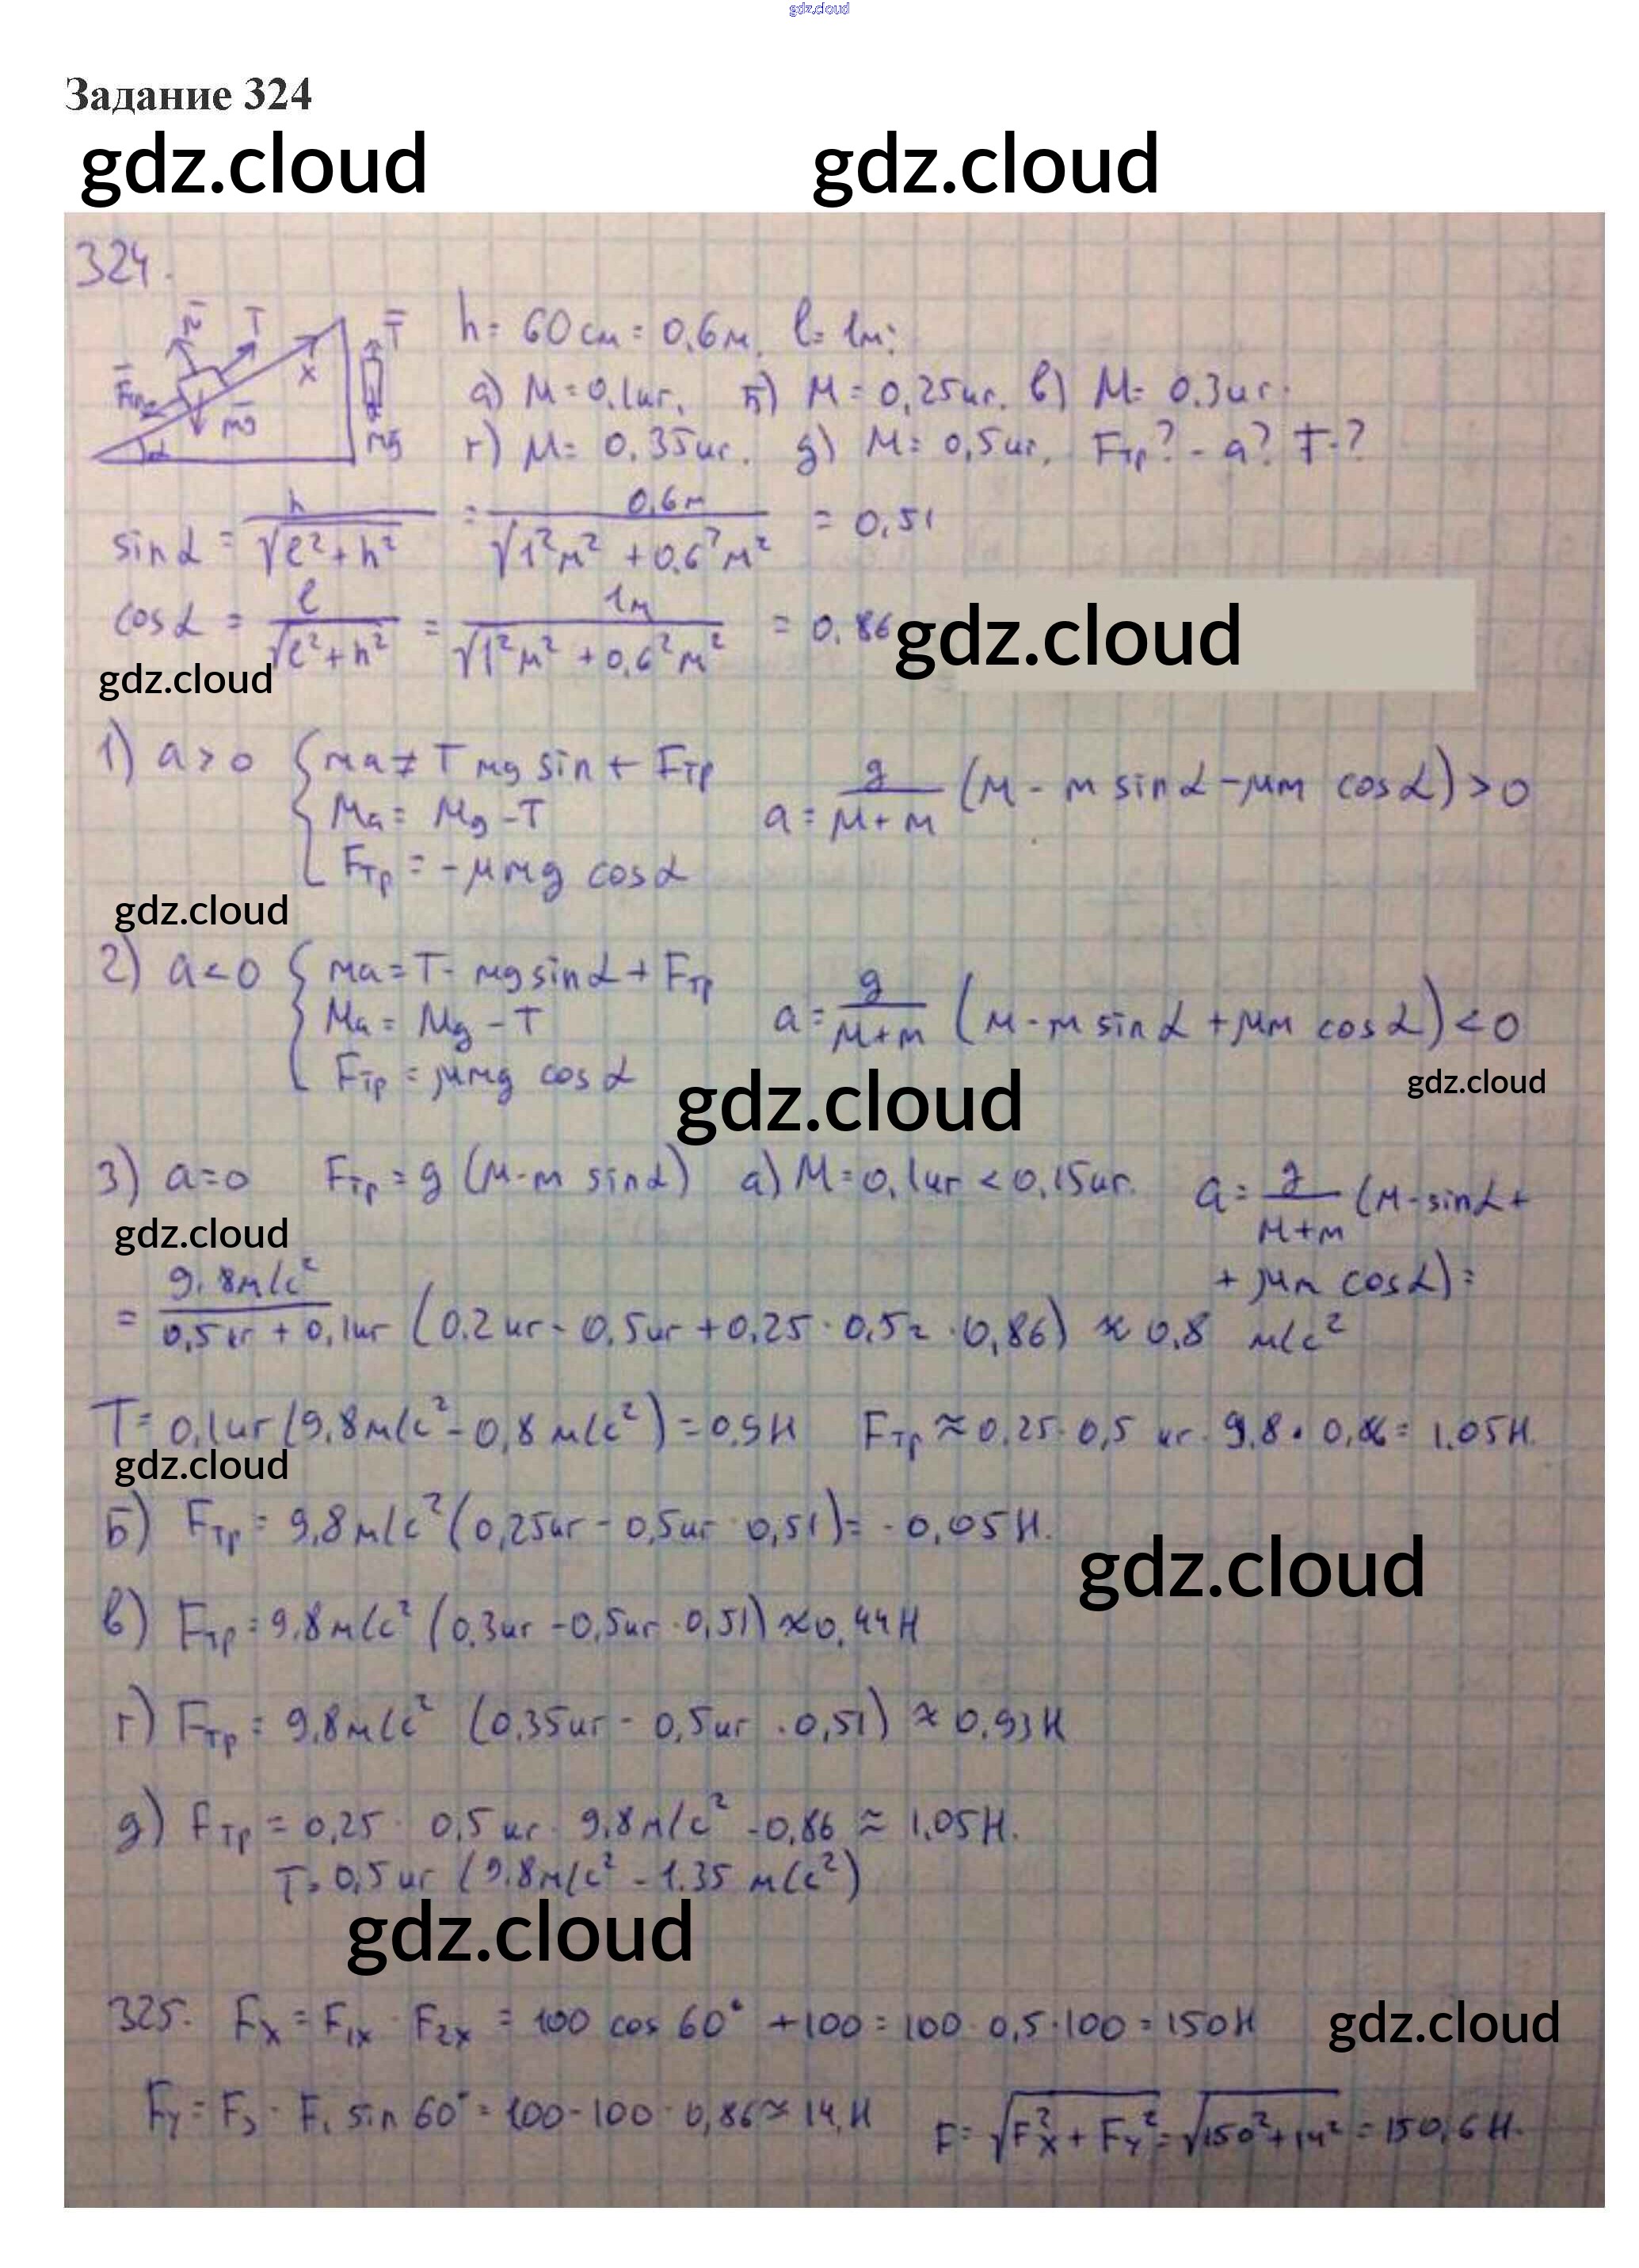 gdz.cloud
Задание 324
gdz.cloud gdz.cloud
324.
N̄ T T̄ h = 60 см = 0,6 м. l = 1 м;
F̄тр mḡ x α mḡ
а) M = 0,1 кг, б) M = 0,25 кг. в) M = 0.3 кг.
г) M = 0,35 кг. д) M = 0,5 кг. Fтр? - a? T-?
sin α = h / √(l² + h²) = 0,6 м / √(1² м² + 0,6² м²) = 0,51
cos α = l / √(l² + h²) = 1 м / √(1² м² + 0,6² м²) = 0,86
gdz.cloud
gdz.cloud
1) a > 0 { ma = T mg sin + Fтр
Ma = Mg - T
Fтр = -μmg cos α
a = g / (M + m) (M - m sin α - μm cos α) > 0
gdz.cloud
2) a < 0 { ma = T - mg sin α + Fтр
Ma = Mg - T
Fтр = μmg cos α
a = g / (M + m) (M - m sin α + μm cos α) < 0
gdz.cloud
gdz.cloud
3) a = 0 Fтр = g (M - m sin α) а) M = 0,1 кг < 0,15 кг. a = g / (M + m) (M - sin α +
+ μm cos α) =
gdz.cloud
= 9.8 м/с² / (0,5 кг + 0,1 кг) (0.2 кг - 0,5 кг + 0,25 · 0,5 · 0,86) ≈ 0,8 м/с²
T = 0,1 кг (9,8 м/с² - 0,8 м/с²) = 0,9 Н Fтр ≈ 0,25 · 0,5 кг · 9,8 · 0,86 = 1.05 Н.
gdz.cloud
Б) Fтр = 9,8 м/с² (0,25 кг - 0,5 кг · 0,51) = - 0,05 Н.
gdz.cloud
в) Fтр = 9,8 м/с² (0,3 кг - 0,5 кг · 0,51) ≈ 0,44 Н
г) Fтр = 9,8 м/с² (0,35 кг - 0,5 кг · 0,51) ≈ 0,93 Н
д) Fтр = 0,25 · 0,5 кг · 9,8 м/с² · 0,86 ≈ 1,05 Н.
T = 0,5 кг (9,8 м/с² - 1.35 м/с²)
gdz.cloud
325. Fx = F1x · F2x = 100 cos 60° + 100 = 100 · 0,5 · 100 = 150 Н
gdz.cloud
Fy = F3 - F1 sin 60° = 100 - 100 · 0,86 ≈ 14 Н F = √(Fx² + Fy²) = √(150² + 14²) = 150,6 Н.